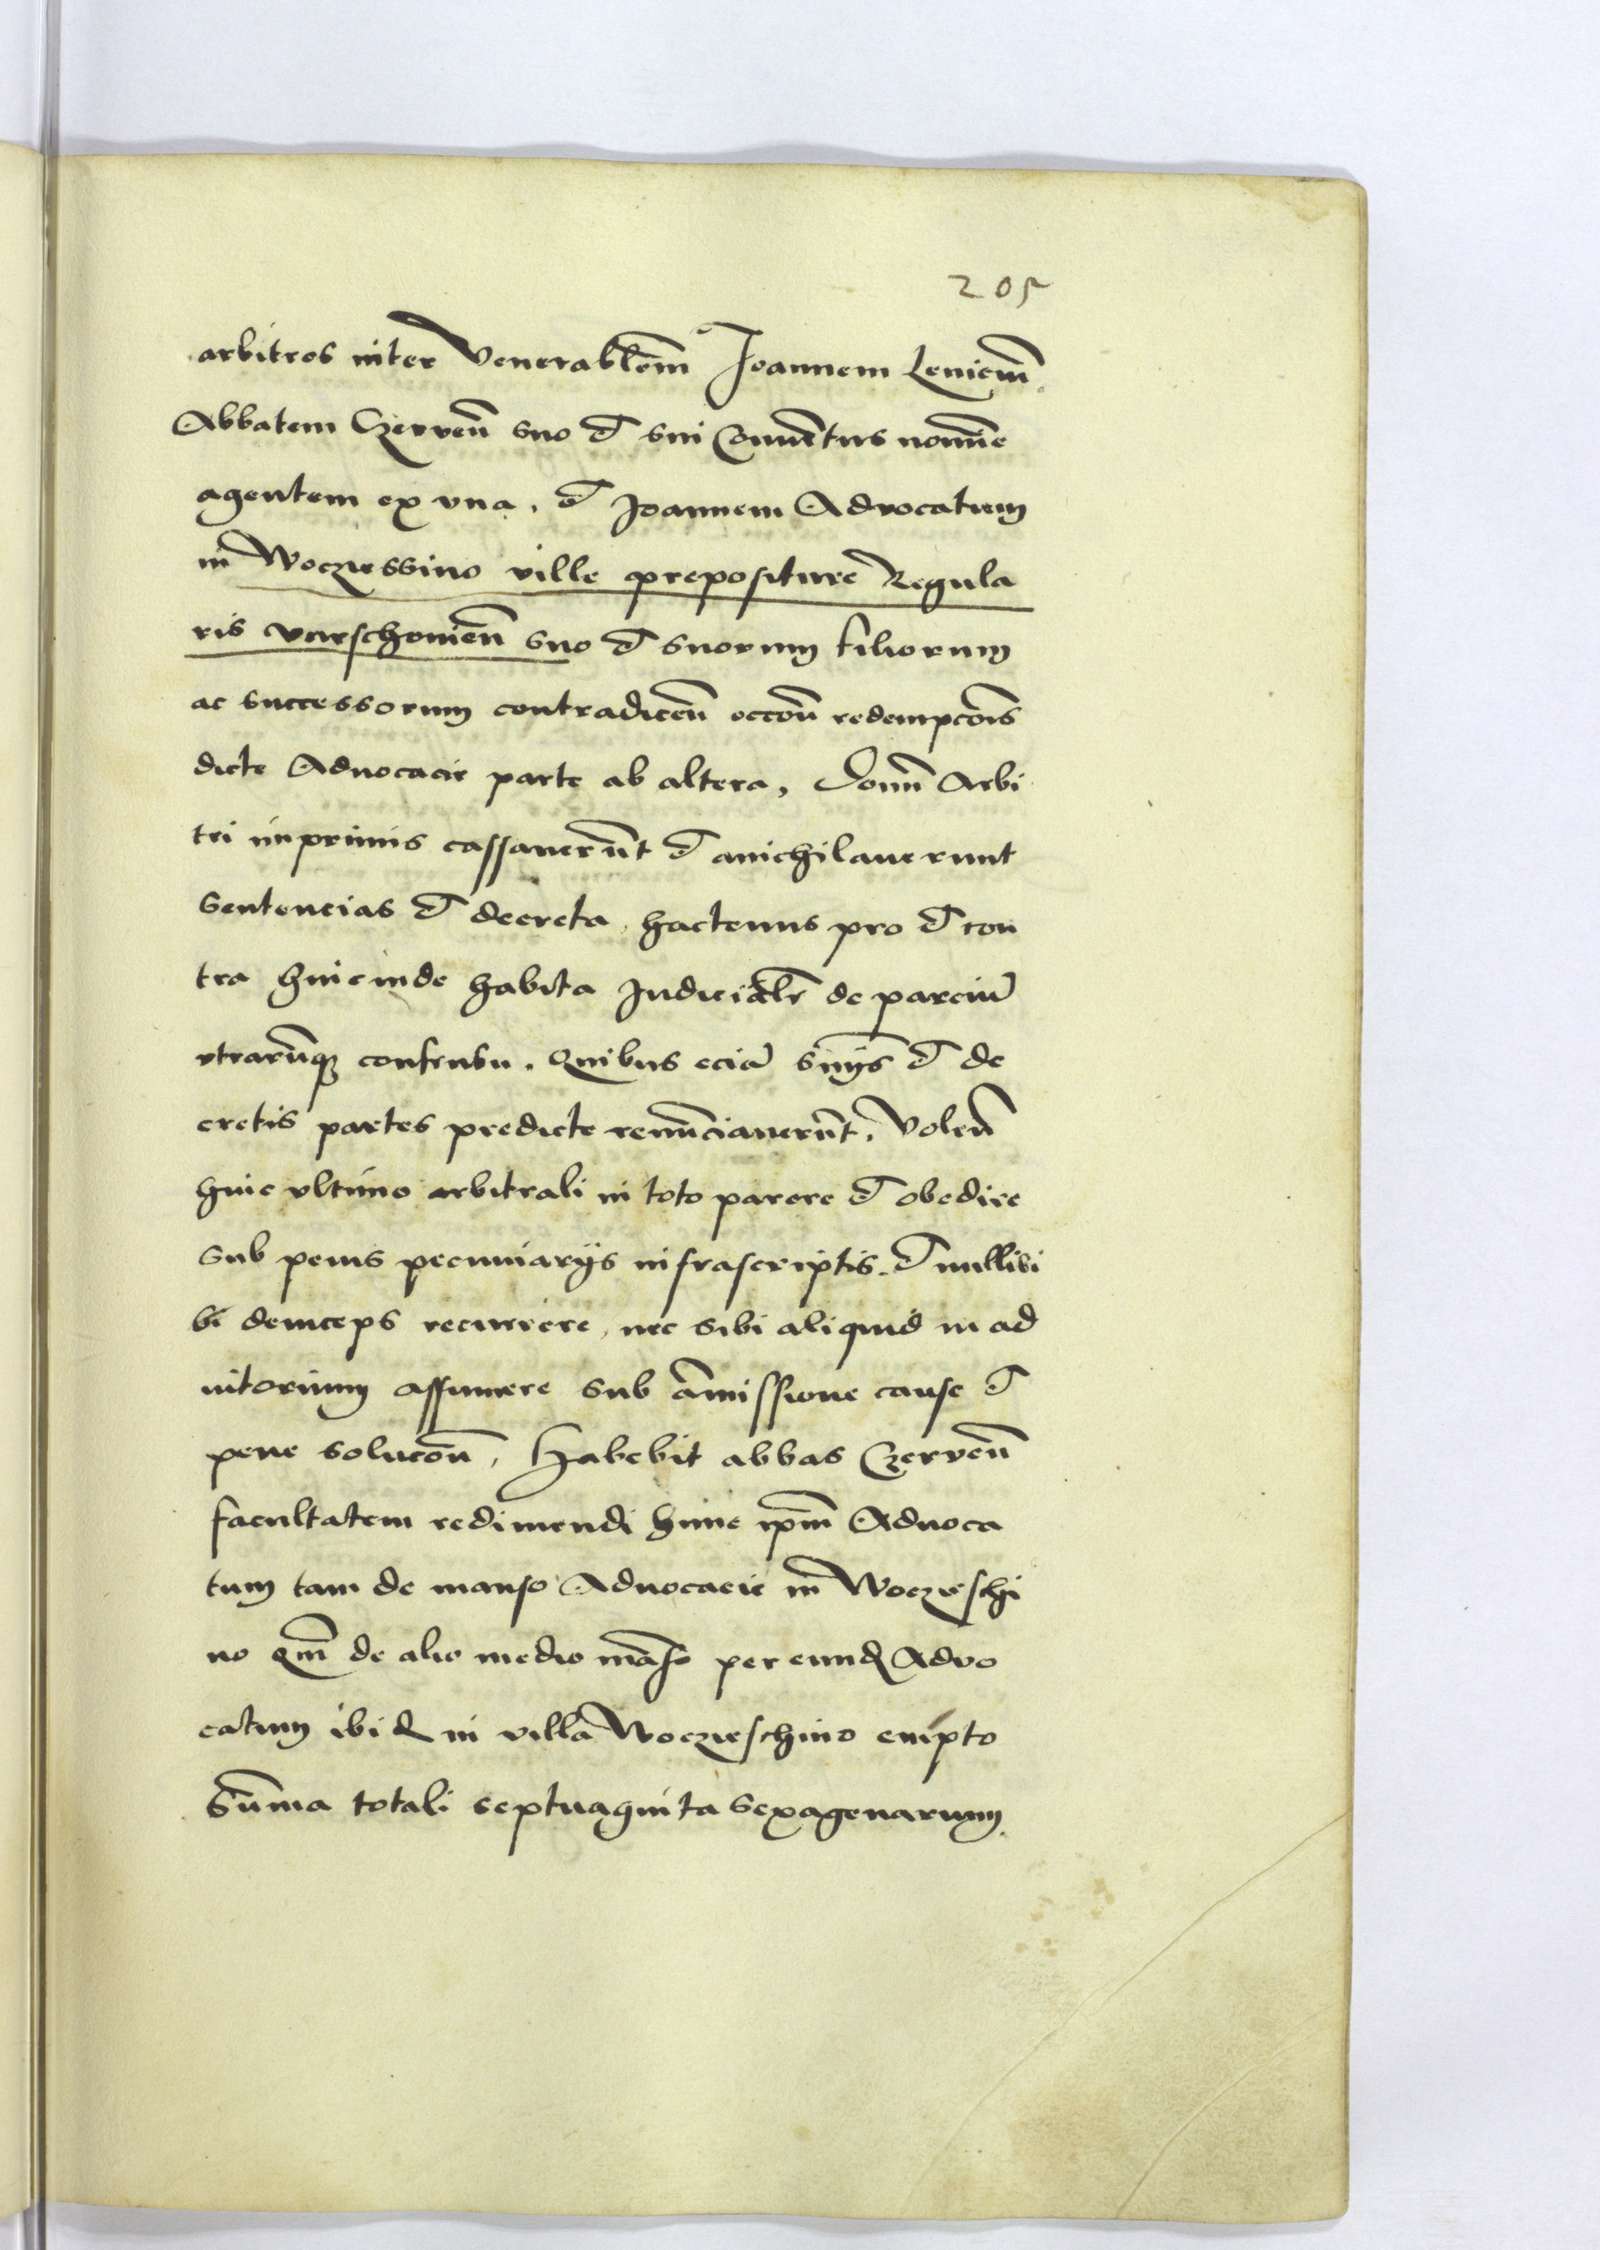 205
arbitros inter Venerablem̄ Joannem Leniem̄
Abbatem Czerven̄ suo et sui Conuētus nomīe
agentem ex vna, et Joannem Advocatum
in Woczessino ville prepositure Regula
ris vnrschouien̄ suo et suorum filiorum
ac successorum contradicen̄ occōn̄ redempcōis
dicte Aduocacie parte ab altera, Domn̄ Arbi
tri inprimis cassauerūt et anichilauerunt
Sentencias et decreta, hactenus pro et con
tra hincinde habita Judicialr̄ de parciū
vtrarūq consensu. Quibus eciā snijs et de
cretis partes predicte renūciauerūt, Volen̄
huic vltimo arbitrali in toto parere et obedire
sub penis pecuniarijs infrascriptis. et nullibi
bi deinceps recurrere, nec sibi aliquid in ad
iutorium assumere sub āmissione cause et
pene solucōn̄, Habebit abbas Czerven̄
facultatem redimendi hunc ipm̄ Aduoca
tum tam de manso Aduocacie in Woczeschi
no qm̄ de alio medio māso per eund Advo
catum ibid in villa Woczieschino empto
Sūma totali septuaginta sexagenarum